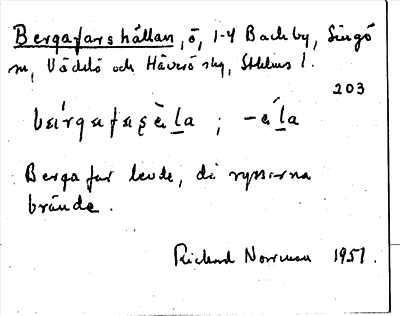 Bergafarshällan, ö, 1-4 Backby, Singö
sn, Väddö och Häverö skg, Sthlms l.
203
; -
Berga far levde, då ryssarna
brände.
Richard Norrman 1951.